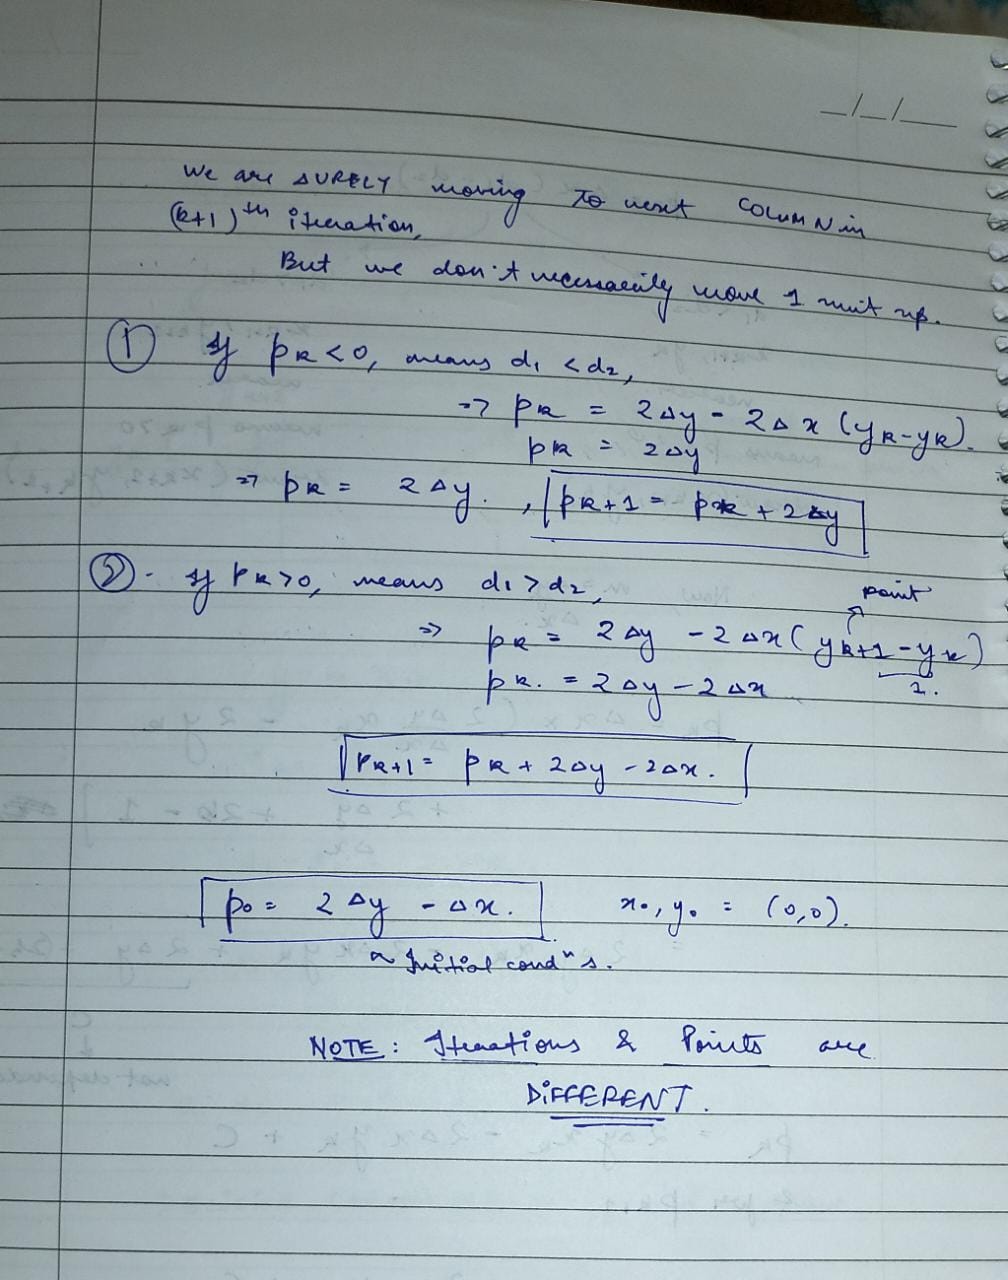 _/_/__
We are SURELY moving to next COLUMN in
(k+1)th iteration,
But we don't necessarily move 1 unit up.
① If pk<0, means d1 < d2,
=> pk = 2Δy - 2Δx (yk-yk).
pk = 2Δy
=> pk = 2Δy. , pk+1 = pk + 2Δy
②. If pk>0, means d1 > d2,
point
=> pk = 2Δy - 2Δx (yk+1-yk)
1.
pk. = 2Δy - 2Δx
pk+1 = pk + 2Δy - 2Δx.
p0 = 2Δy - Δx. x0, y0 = (0,0).
~ Initial condns.
NOTE: Iterations & Points are
DIFFERENT.